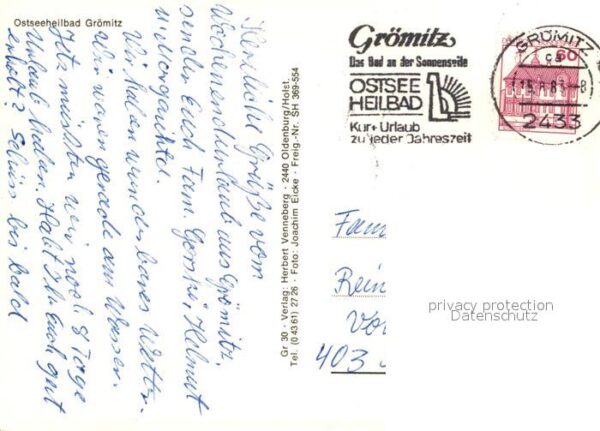 Ostseeheilbad Grömitz
Herzliche Grüße vom
Wochenendurlaub aus Grömitz,
senden Euch Fam. Helmut
Wir haben wunderbares Wetter.
Wir waren gerade am Wasser.
Jetz müßten wir noch 8 Tage
Urlaub haben. Habt Ihr Euch gut
erholt? bis bald
Gr 30 · Verlag: Herbert Venneberg · 2440 Oldenburg/Holst.
Tel. (0 43 61) 27 26 · Foto: Joachim Eicke · Freig.-Nr. SH 369-554
Grömitz
Das Bad an der Sonnenseite
OSTSEE
HEILBAD
Kur + Urlaub
zu jeder Jahreszeit
GRÖMITZ
60
2433
Fam
Rein
Vo
403
privacy protection
Datenschutz